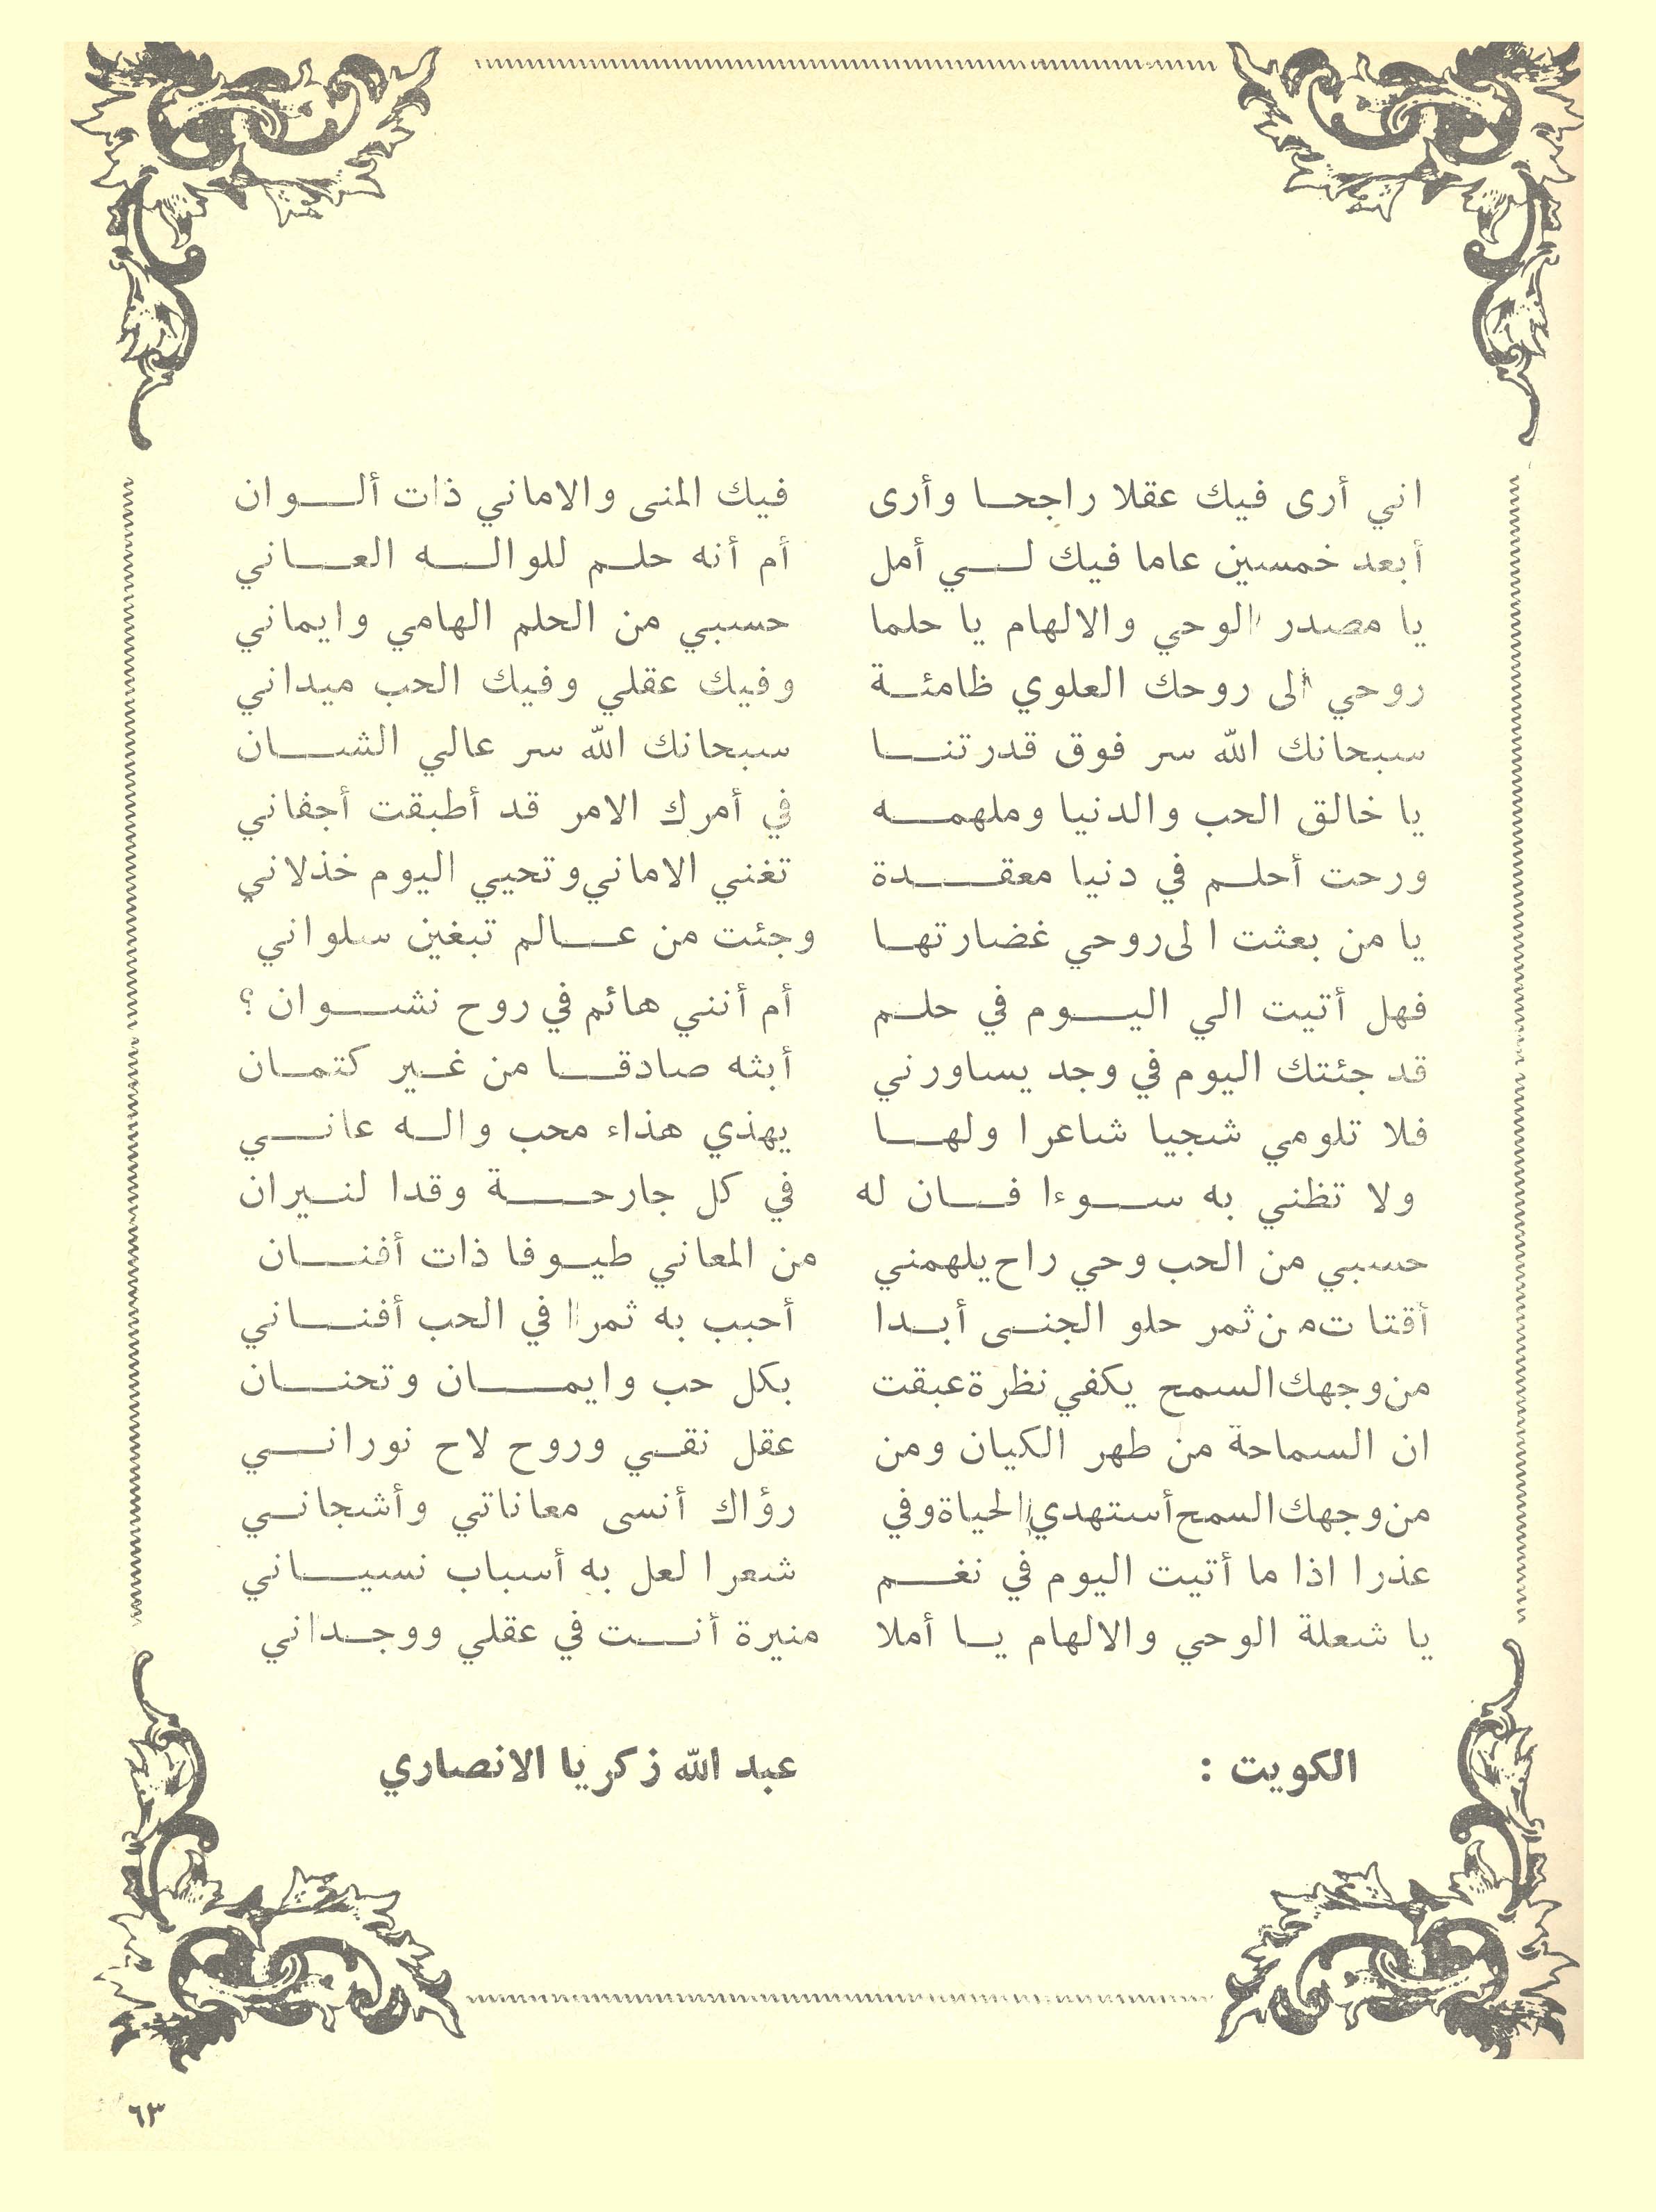 اني أرى فيك عقلا راجحا وأرى فيك المنى والاماني ذات ألوان
أبعد خمسين عاما فيك لي أمل أم أنه حلم للواله العاني
يا مصدر الوحي والالهام يا حلما حسبي من الحلم الهامي وايماني
روحي الى روحك العلوي ظامئة وفيك عقلي وفيك الحب ميداني
سبحانك الله سر فوق قدرتنا سبحانك الله سر عالي الشان
يا خالق الحب والدنيا وملهمه في أمرك الامر قد أطبقت أجفاني
ورحت أحلم في دنيا معقدة تغني الاماني وتحيي اليوم خذلاني
يا من بعثت الى روحي غضارتها وجئت من عالم تبغين سلواني
فهل أتيت الي اليوم في حلم أم أنني هائم في روح نشوان ؟
قد جئتك اليوم في وجد يساورني أبثه صادقا من غير كتمان
فلا تلومي شجيا شاعرا ولها يهذي هذاء محب واله عاني
ولا تظني به سوءا فان له في كل جارحة وقدا لنيران
حسبي من الحب وحي راح يلهمني من المعاني طيوفا ذات أفنان
أقتات من ثمر حلو الجنى أبدا أحبب به ثمرا في الحب أفناني
من وجهك السمح يكفي نظرة عبقت بكل حب وايمان وتحنان
ان السماحة من طهر الكيان ومن عقل نقي وروح لاح نوراني
من وجهك السمح أستهدي الحياة وفي رؤاك أنسى معاناتي وأشجاني
عذرا اذا ما أتيت اليوم في نغم شعرا لعل به أسباب نسياني
يا شعلة الوحي والالهام يا أملا منيرة أنت في عقلي ووجداني
الكويت : عبد الله زكريا الانصاري
٦٣